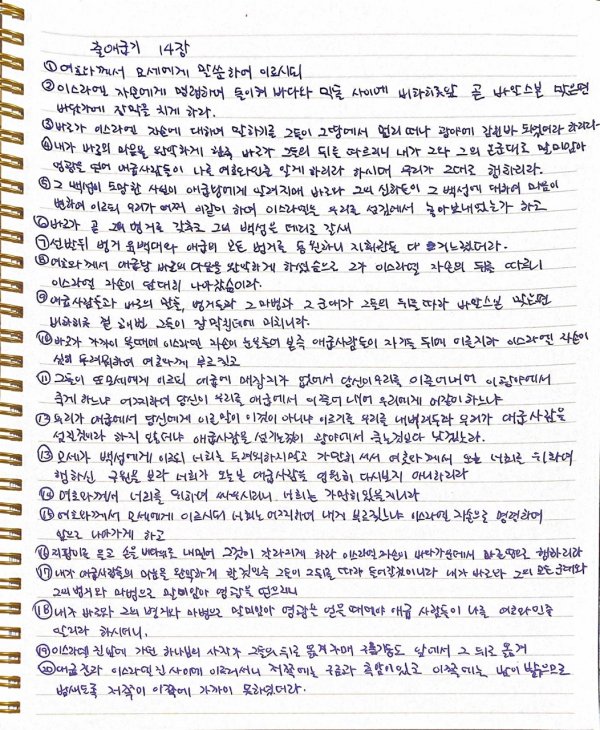 출애굽기 14장
① 여호와께서 모세에게 말씀하여 이르시되
② 이스라엘 자손에게 명령하여 돌이켜 바다와 믹돌 사이에 비하히롯앞 곧 바알스본 맞은편
바닷가에 장막을 치게 하라.
③ 바로가 이스라엘 자손에 대하여 말하기를 그들이 그땅에서 멀리 떠나 광야에 갇힌바 되었다 하리라
④ 내가 바로의 마음을 완악하게 한즉 바로가 그들의 뒤를 따르리니 내가 그와 그의 온군대로 말미암아
영광을 얻어 애굽사람들이 나를 여호와인줄 알게 하리라 하시매 무리가 그대로 행하니라.
⑤ 그 백성이 도망한 사실이 애굽왕에게 알려지매 바로와 그의 신하들이 그 백성에 대하여 마음이
변하여 이르되 우리가 어찌 이같이 하여 이스라엘을 우리를 섬김에서 놓아보내었는가 하고
⑥ 바로가 곧 그의 병거를 갖추고 그의 백성을 데리고 갈새
⑦ 선발된 병거 육백대와 애굽의 모든 병거를 동원하니 지휘관들 다 거느렸더라.
⑧ 여호와께서 애굽왕 바로의 마음을 완악하게 하셨으므로 그가 이스라엘 자손의 뒤를 따르니
이스라엘 자손이 담대히 나갔음이라.
⑨ 애굽사람들과 바로의 말들, 병거들과 그 마병과 그 군대가 그들의 뒤를 따라 바알스본 맞은편
비하히롯 곁 해변 그들이 장막친데에 미치니라.
⑩ 바로가 가까이 올때에 이스라엘 자손이 눈을들어 본즉 애굽사람들이 자기들 뒤에 이른지라 이스라엘 자손이
심히 두려워하여 여호와께 부르짖고
⑪ 그들이 또 모세에게 이르되 애굽에 매장지가 없어서 당신이 우리를 이끌어내어 이 광야에서
죽게 하느냐 어찌하여 당신이 우리를 애굽에서 이끌어 내어 우리에게 이같이 하느냐
⑫ 우리가 애굽에서 당신에게 이른말이 이것이 아니냐 이르기를 우리를 내버려두라 우리가 애굽사람을
섬길것이라 하지 않더냐 애굽사람을 섬기는것이 광야에서 죽는것보다 낫겠노라.
⑬ 모세가 백성에게 이르되 너희는 두려워하지말고 가만히 서서 여호와께서 오늘 너희를 위하여
행하신 구원을 보라 너희가 오늘본 애굽사람을 영원히 다시보지 아니하리라
⑭ 여호와께서 너희를 위하여 싸우시리니 너희는 가만히있을지니라
⑮ 여호와께서 모세에게 이르시되 너희는 어찌하여 내게 부르짖느냐 이스라엘 자손으로 명령하여
앞으로 나아가게 하고
⑯ 지팡이를 들고 손을 바다위로 내밀어 그것이 갈라지게 하라 이스라엘 자손이 바다가운데서 마른땅으로 행하리라
⑰ 내가 애굽사람들의 마음을 완악하게 할것인즉 그들이 그뒤를 따라 들어갈것이니라 내가 바로와 그의모든군대와
그의병거와 마병으로 말미암아 영광을 얻으리니
⑱ 내가 바로와 그의 병거와 마병으로 말미암아 영광을 얻을 때에야 애굽 사람들이 나를 여호와인줄
알리라 하시더니.
⑲ 이스라엘 진앞에 가던 하나님의 사자가 그들의 뒤로 옮겨가매 구름기둥도 앞에서 그 뒤로 옮겨
⑳ 애굽진과 이스라엘 진 사이에 이르러서니 저쪽에는 구름과 흑암이있고 이쪽에는 밤이 밝으므로
밤새도록 저쪽이 이쪽에 가까이 못하였더라.